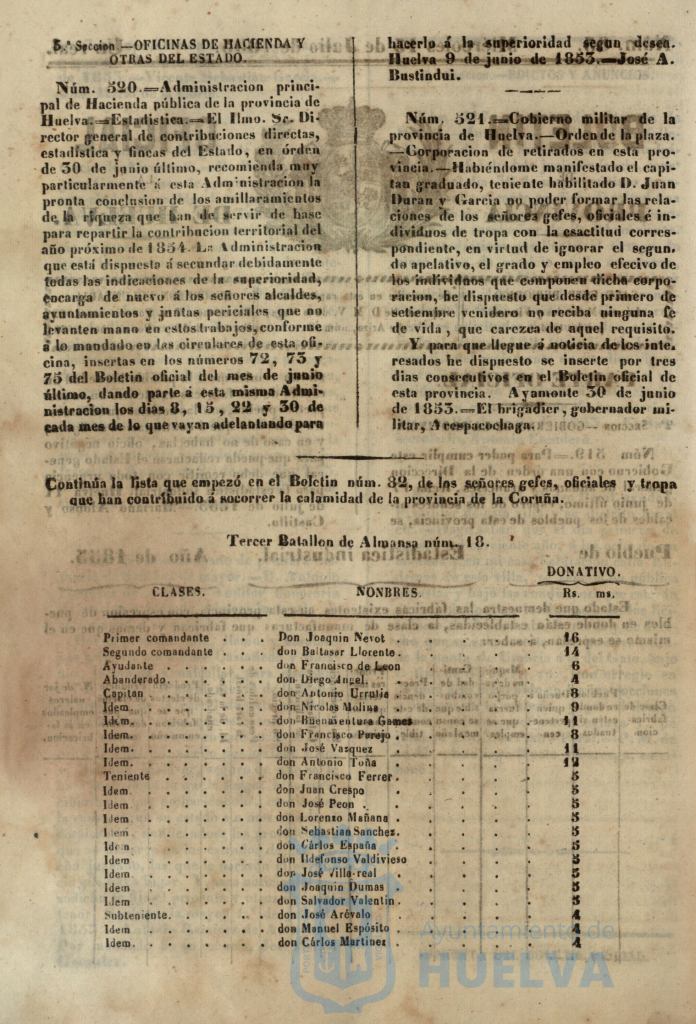 5.ª Seccion.—OFICINAS DE HACIENDA Y
OTRAS DEL ESTADO.
Núm. 520.=Administracion princi-
pal de Hacienda pública de la provincia de
Huelva.=Estadistica.=El Ilmo. Sr. Di-
rector general de contribuciones directas,
estadística y fincas del Estado, en órden
de 30 de junio último, recomienda muy
particularmente á esta Administracion la
pronta conclusion de los amillaramientos
de la riqueza que han de servir de base
para repartir la contribucion territorial del
año próximo de 1854. La Administracion
que está dispuesta á secundar debidamente
todas las indicaciones de la superioridad,
encarga de nuevo á los señores alcaldes,
ayuntamientos y juntas periciales que no
levanten mano en estos trabajos, conforme
á lo mandado en las circulares de esta ofi-
cina, insertas en los números 72, 73 y
75 del Boletin oficial del mes de junio
último, dando parte á esta misma Admi-
nistracion los dias 8, 15, 22 y 30 de
cada mes de lo que vayan adelantando para
hacerlo á la superioridad segun desea.
Huelva 9 de junio de 1853.=José A.
Bustindui.
Núm. 521.=Gobierno militar de la
provincia de Huelva.—Orden de la plaza.
—Corporacion de retirados en esta pro-
vincia.—Habiéndome manifestado el capi-
tan graduado, teniente habilitado D. Juan
Duran y Garcia no poder formar las rela-
ciones de los señores gefes, oficiales é in-
dividuos de tropa con la esactitud corres-
pondiente, en virtud de ignorar el segun-
do apelativo, el grado y empleo efecivo de
los individuos que componen dicha corpo-
racion, he dispuesto que desde primero de
setiembre venidero no reciba ninguna fe
de vida, que carezca de aquel requisito.
Y para que llegue á noticia de los inte-
resados he dispuesto se inserte por tres
dias consecutivos en el Boletin oficial de
esta provincia. Ayamonte 30 de junio
de 1853.=El brigadier, gobernador mi-
litar, Arespacochaga.
Continúa la lista que empezó en el Boletin núm. 82, de los señores gefes, oficiales y tropa
que han contribuido á socorrer la calamidad de la provincia de la Coruña.
Tercer Batallon de Almansa núm. 18.
DONATIVO.
CLASES. NONBRES. Rs. ms.
Primer comandante . . . Don Joaquin Nevot . . . . . 16
Segundo comandante . . . don Baltasar Llorente . . . . 14
Ayudante . . . . don Francisco de Leon . . . . 6
Abanderado . . . . don Diego Angel . . . . 4
Capitan . . . . don Antonio Urrutia . . . . 8
Idem . . . . don Nicolas Molina . . . . 9
Idem . . . . don Buenaventura Games . . . 11
Idem . . . . don Francisco Parejo . . . . 8
Idem . . . . don José Vazquez . . . . 11
Idem . . . . don Antonio Toña . . . . 12
Teniente . . . . don Francisco Ferrer . . . . 5
Idem . . . . don Juan Crespo . . . . 5
Idem . . . . don José Peon . . . . 5
Idem . . . . don Lorenzo Mañana . . . . 5
Idem . . . . don Sebastian Sanchez . . . . 5
Idem . . . . don Cárlos España . . . . 5
Idem . . . . don Ildefonso Valdivieso . . . 5
Idem . . . . don José Villa-real . . . . 5
Idem . . . . don Joaquin Dumas . . . . 5
Idem . . . . don Salvador Valentin . . . . 5
Subteniente . . . . don José Arévalo . . . . 4
Idem . . . . don Manuel Espósito . . . . 4
Idem . . . . don Cárlos Martinez . . . . 4
Ayuntamiento de
HUELVA